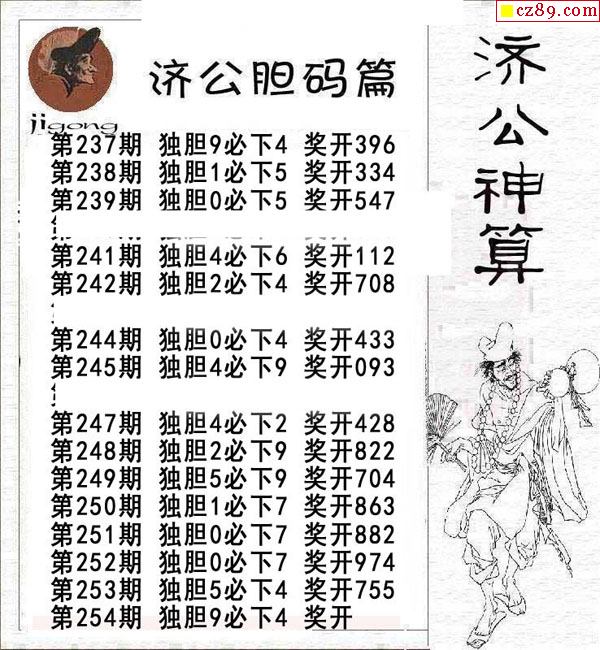 cz89.com
济公胆码篇
jigong
济公神算
第237期 独胆9必下4 奖开396
第238期 独胆1必下5 奖开334
第239期 独胆0必下5 奖开547
第241期 独胆4必下6 奖开112
第242期 独胆2必下4 奖开708
第244期 独胆0必下4 奖开433
第245期 独胆4必下9 奖开093
第247期 独胆4必下2 奖开428
第248期 独胆2必下9 奖开822
第249期 独胆5必下9 奖开704
第250期 独胆1必下7 奖开863
第251期 独胆0必下7 奖开882
第252期 独胆0必下7 奖开974
第253期 独胆5必下4 奖开755
第254期 独胆9必下4 奖开